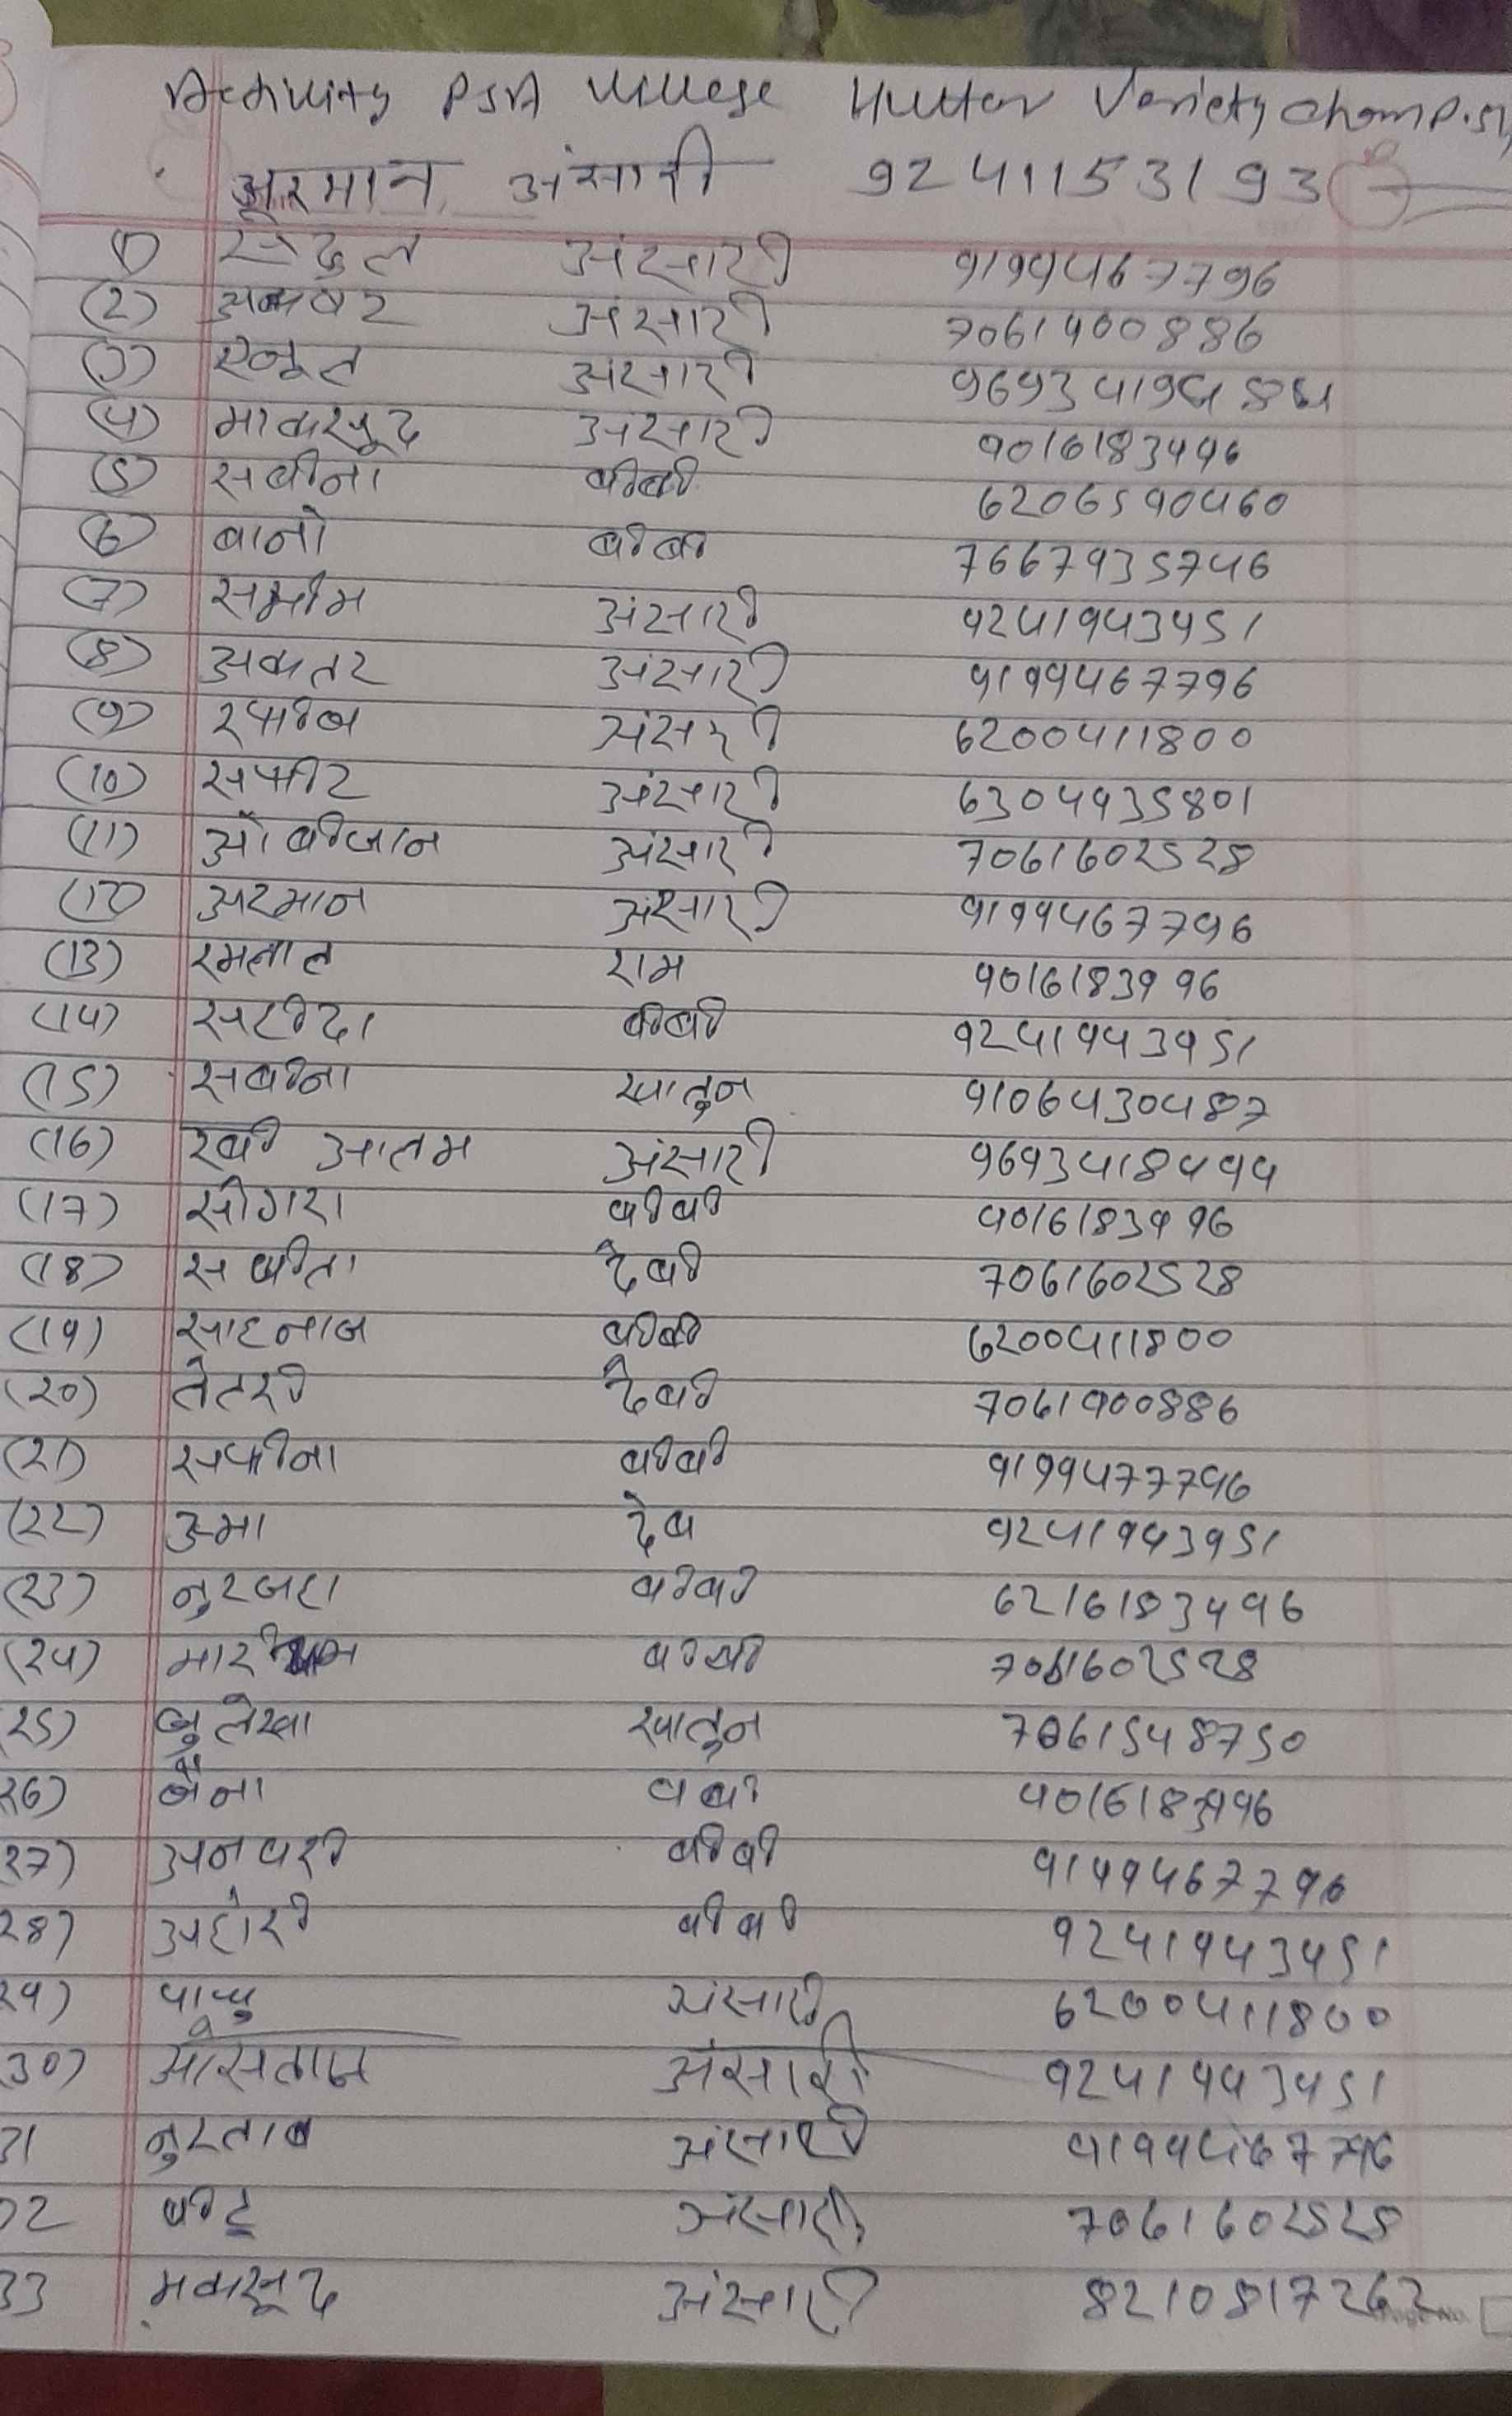 Activity PSA Village Huttar Variety Champ.51
अरमान अंसारी 9241153193
(1) सदुल अंसारी 9199467796
(2) अकबर अंसारी 7061900886
(3) रसूल अंसारी
(4) माकसूद अंसारी 9016183996
(5) सबीना बीबी 6206590460
(6) बानो बीबी 7667935746
(7) समीम अंसारी 9241943951
(8) अकतर अंसारी 9199467796
(9) अंसारी 6200411800
(10) सफीर अंसारी 6304935801
(11) औबीजान अंसारी 7061602528
(12) अरमान अंसारी 9199467796
(13) रमलाल राम 9016183996
(14) सहीदा बीबी 9241943951
(15) सबीना खातुन 9106430487
(16) रबी आलम अंसारी 9693418494
(17) सोगरा बीबी 9016183996
(18) सबीता देबी 7061602528
(19) साहनाज बीबी 6200411800
(20) तेतरी देबी 7061900886
(21) सफीना बीबी 9199477796
(22) उमा देब 9241943951
(23) नुरजहा बीबी 6216183996
(24) बीबी 7061602528
25) जुलेखा खातुन 7061548750
26) जैना बबी
27) अनवरी बीबी 9199467796
28) बीबी 9241943951
29) पापु अंसारी 6200411800
30) अंसारी 9241943951
31 नुरताब अंसारी 9199467796
32 बीटू अंसारी 7061602528
33 मकसूद अंसारी 8210817262